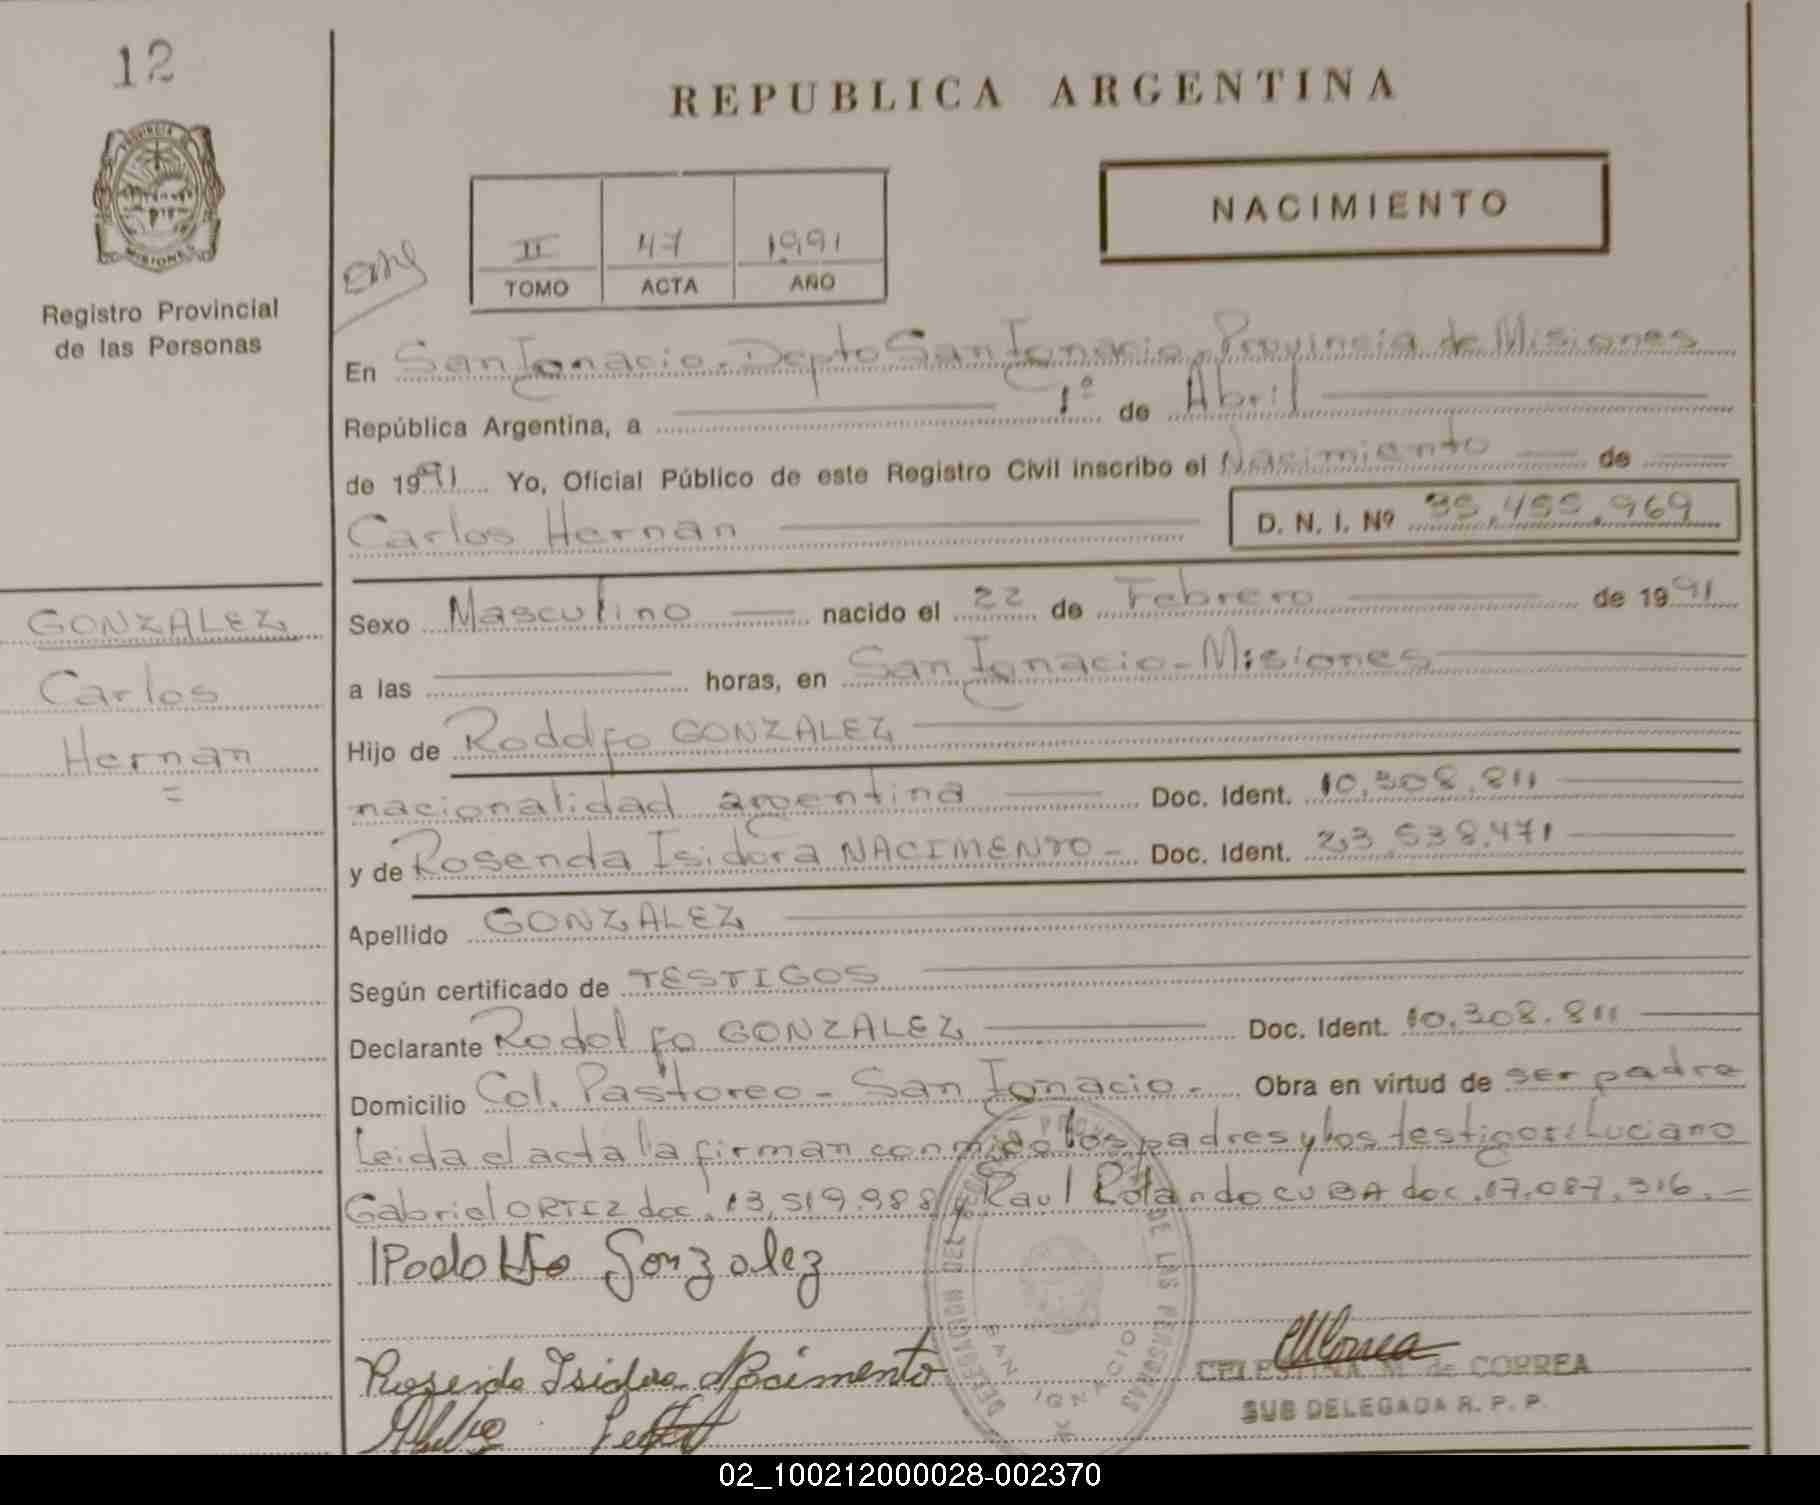 12
REPUBLICA ARGENTINA
PROVINCIA DE
MISIONES
NACIMIENTO
II 47 1991
TOMO ACTA AÑO
Registro Provincial
de las Personas
En San Ignacio - Depto San Ignacio, Provincia de Misiones
República Argentina, a 1º de Abril
de 1991 Yo, Oficial Público de este Registro Civil inscribo el Nacimiento de
Carlos Hernan D. N. I. Nº 35.455.969
GONZALEZ
Carlos
Hernan
=
Sexo Masculino nacido el 22 de Febrero de 1991
a las horas, en San Ignacio - Misiones
Hijo de Rodolfo GONZALEZ
nacionalidad argentina Doc. Ident. 10.308.811
y de Rosenda Isidora NACIMENTO - Doc. Ident. 23.538.471
Apellido GONZALEZ
Según certificado de TESTIGOS
Declarante Rodolfo GONZALEZ Doc. Ident. 10.308.811
Domicilio Col. Pastoreo - San Ignacio - Obra en virtud de ser padre
Leida el acta la firman conmigo los padres y los testigos: Luciano
Gabriel ORTIZ doc. 13.519.988 y Raul Rolando CUBA doc. 17.087.316.-
Rodolfo Gonzalez
Rosenda Isidora Nacimento
DELEGACION DEL REGISTRO PROVINCIAL DE LAS PERSONAS
SAN IGNACIO
CELESTINA M. de CORREA
SUB DELEGADA R. P. P.
02_100212000028-002370